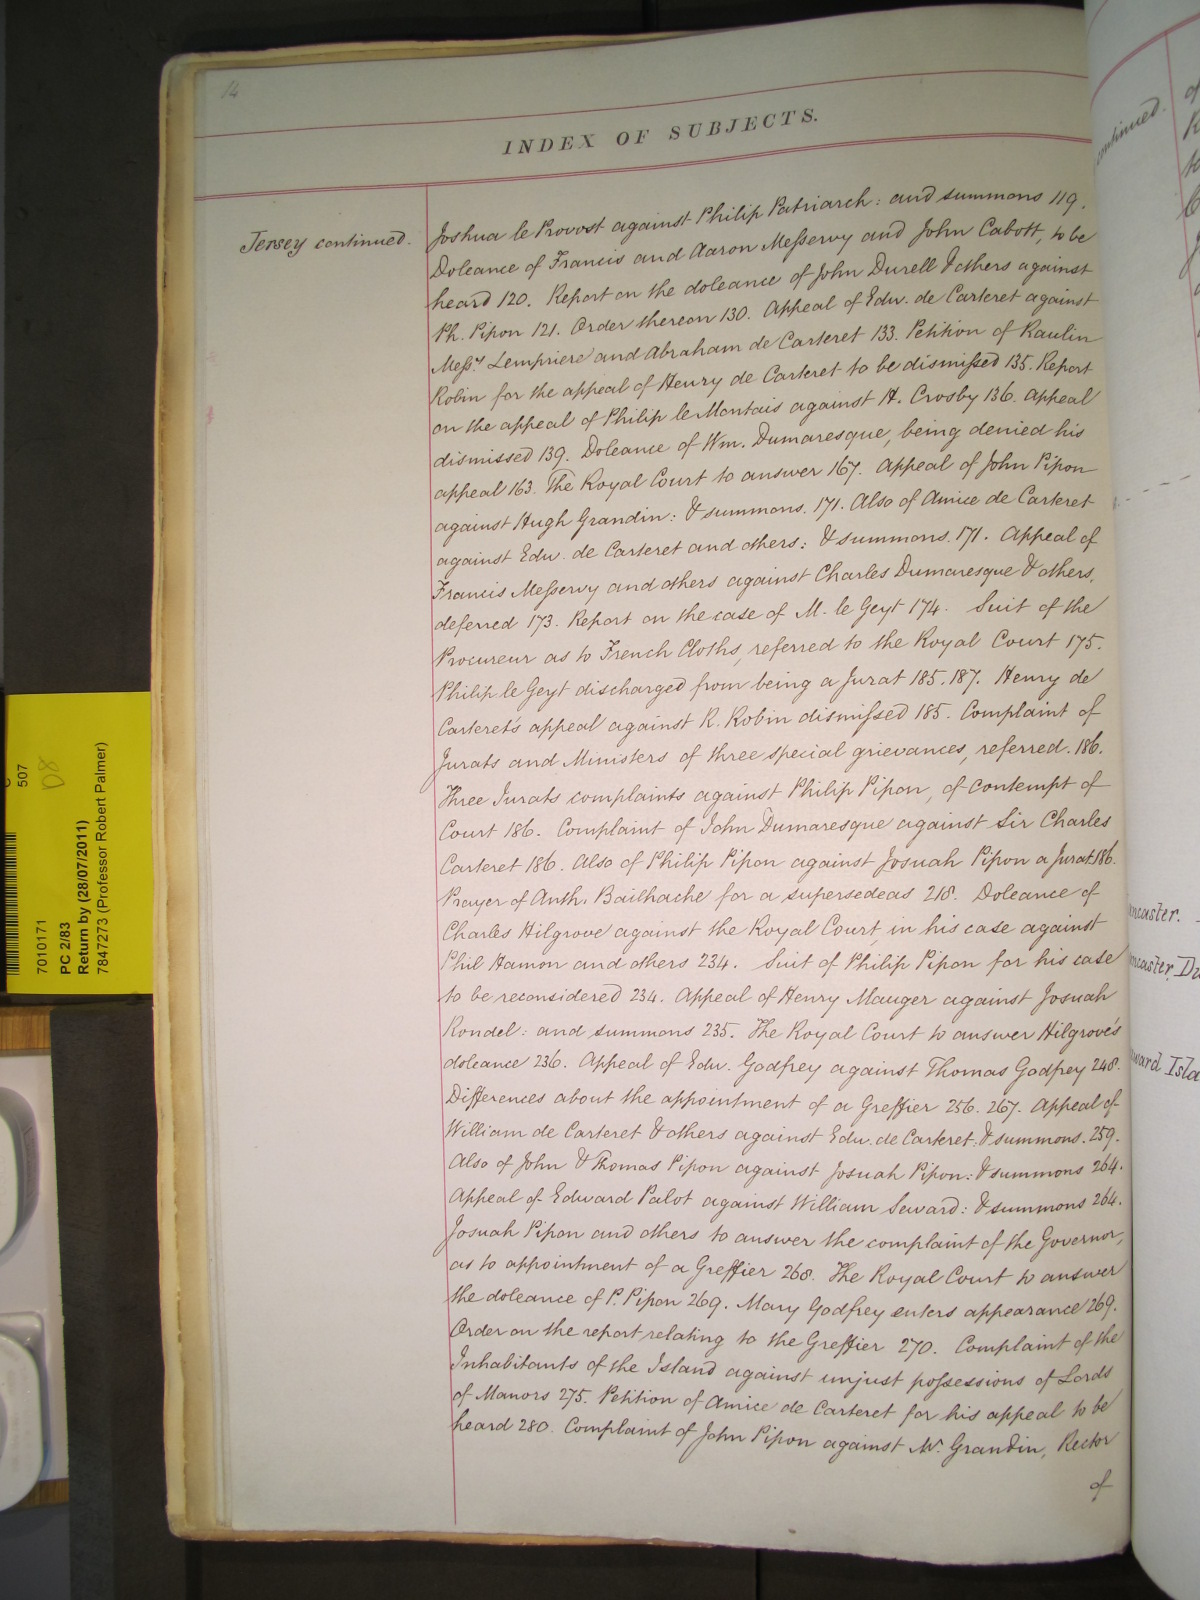 14
INDEX OF SUBJECTS.
Jersey continued.
Joshua le Provost against Philip Patriarch: and summons 119.
Doleance of Francis and Aaron Messervy and John Cabott, to be
heard 120. Report on the doleance of John Durell & others against
Ph. Pipon 121. Order thereon 130. Appeal of Edw. de Carteret against
Messrs Lempriere and Abraham de Carteret 133. Petition of Raulin
Robin for the appeal of Henry de Carteret to be dismissed 135. Report
on the appeal of Philip le Montais against H. Crosby 136. Appeal
dismissed 139. Doleance of Wm. Dumaresque, being denied his
appeal 163. The Royal Court to answer 167. Appeal of John Pipon
against Hugh Grandin: & summons. 171. Also of Amice de Carteret
against Edw. de Carteret and others: & summons. 171. Appeal of
Francis Messervy and others against Charles Dumaresque & others,
deferred 173. Report on the case of M. le Geyt 174. Suit of the
Procureur as to French Cloths, referred to the Royal Court 175.
Philip le Geyt discharged from being a Jurat 185. 187. Henry de
Carteret's appeal against R. Robin dismissed 185. Complaint of
Jurats and Ministers of three special grievances, referred. 186.
Three Jurats complaints against Philip Pipon, of contempt of
Court 186. Complaint of John Dumaresque against Sir Charles
Carteret 186. Also of Philip Pipon against Josuah Pipon a Jurat 186.
Prayer of Anth. Bailhache for a supersedeas 218. Doleance of
Charles Hilgrove against the Royal Court, in his case against
Phil Hamon and others 234. Suit of Philip Pipon for his case
to be reconsidered 234. Appeal of Henry Mauger against Josuah
Rondel: and summons 235. The Royal Court to answer Hilgrove's
doleance 236. Appeal of Edw. Godfrey against Thomas Godfrey 248.
Differences about the appointment of a Greffier 256. 267. Appeal of
William de Carteret & others against Edw. de Carteret: & summons. 259.
Also of John & Thomas Pipon against Josuah Pipon: & summons 264.
Appeal of Edward Palot against William Seward: & summons 264.
Josuah Pipon and others to answer the complaint of the Governor,
as to appointment of a Greffier 268. The Royal Court to answer
the doleance of P. Pipon 269. Mary Godfrey enters appearance 269.
Order on the report relating to the Greffier 270. Complaint of the
Inhabitants of the Island against unjust possessions of Lords
of Manors 275. Petition of Amice de Carteret for his appeal to be
heard 280. Complaint of John Pipon against Mr. Grandin, Rector
of
507
D8
7010171
PC 2/83
Return by (28/07/2011)
7847273 (Professor Robert Palmer)